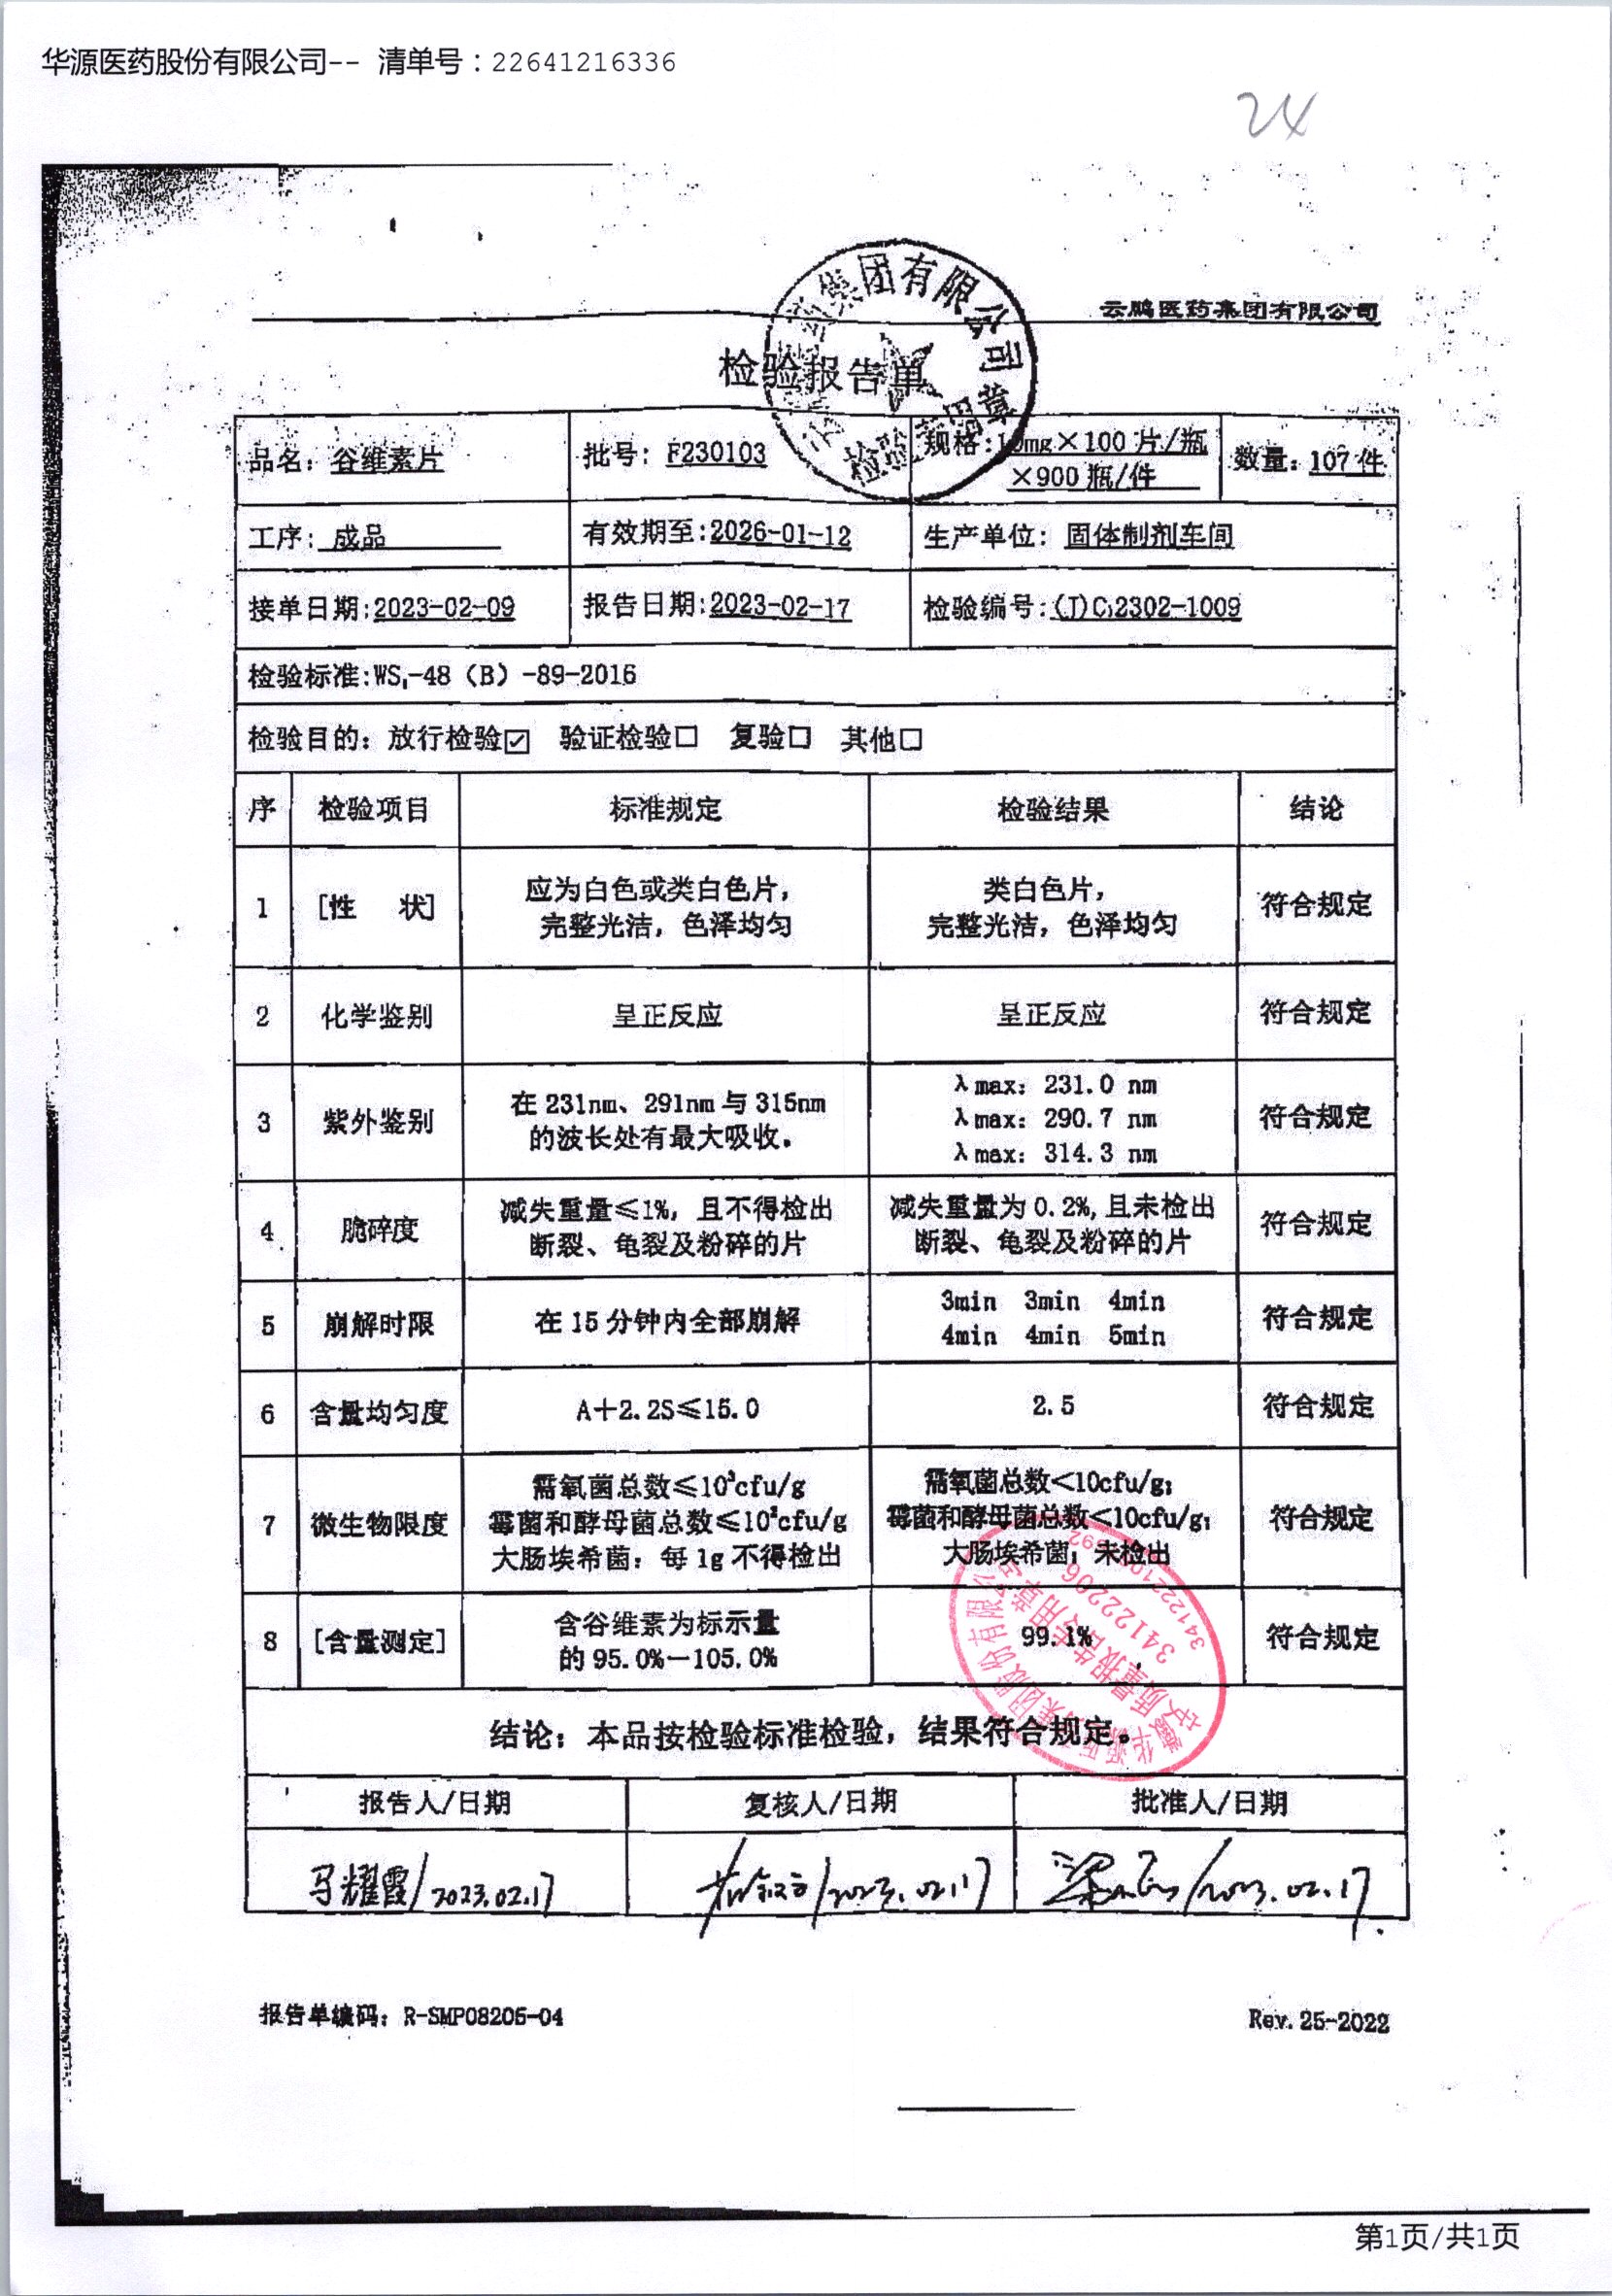 华源医药股份有限公司-- 清单号：22641216336
24
云鹏医药集团有限公司
检验报告单
药集团有限公司
检验专用章
品名：谷维素片 批号：F230103 规格：10mg×100片/瓶 数量：107件
×900瓶/件
工序：成品 有效期至：2026-01-12 生产单位：固体制剂车间
接单日期：2023-02-09 报告日期：2023-02-17 检验编号：(J)C2302-1009
检验标准：WS₁-48（B）-89-2016
检验目的：放行检验☑ 验证检验□ 复验□ 其他□
序 检验项目 标准规定 检验结果 结论
1 [性 状] 应为白色或类白色片， 类白色片， 符合规定
完整光洁，色泽均匀 完整光洁，色泽均匀
2 化学鉴别 呈正反应 呈正反应 符合规定
3 紫外鉴别 在231nm、291nm与315nm λmax：231.0 nm 符合规定
的波长处有最大吸收。 λmax：290.7 nm
λmax：314.3 nm
4 脆碎度 减失重量≤1%，且不得检出 减失重量为0.2%,且未检出 符合规定
断裂、龟裂及粉碎的片 断裂、龟裂及粉碎的片
5 崩解时限 在15分钟内全部崩解 3min 3min 4min 符合规定
4min 4min 5min
6 含量均匀度 A+2.2S≤15.0 2.5 符合规定
7 微生物限度 需氧菌总数≤10³cfu/g 需氧菌总数<10cfu/g； 符合规定
霉菌和酵母菌总数≤10²cfu/g 霉菌和酵母菌总数<10cfu/g；
大肠埃希菌：每1g不得检出 大肠埃希菌：未检出
8 [含量测定] 含谷维素为标示量 99.1% 符合规定
的95.0%—105.0%
安徽华源医药集团股份有限公司
质量报告专用章
34122206
结论：本品按检验标准检验，结果符合规定。
报告人/日期 复核人/日期 批准人/日期
马耀霞/2023.02.17 /2023.02.17 /2023.02.17
报告单编码：R-SMP08205-04 Rev.25-2022
第1页/共1页